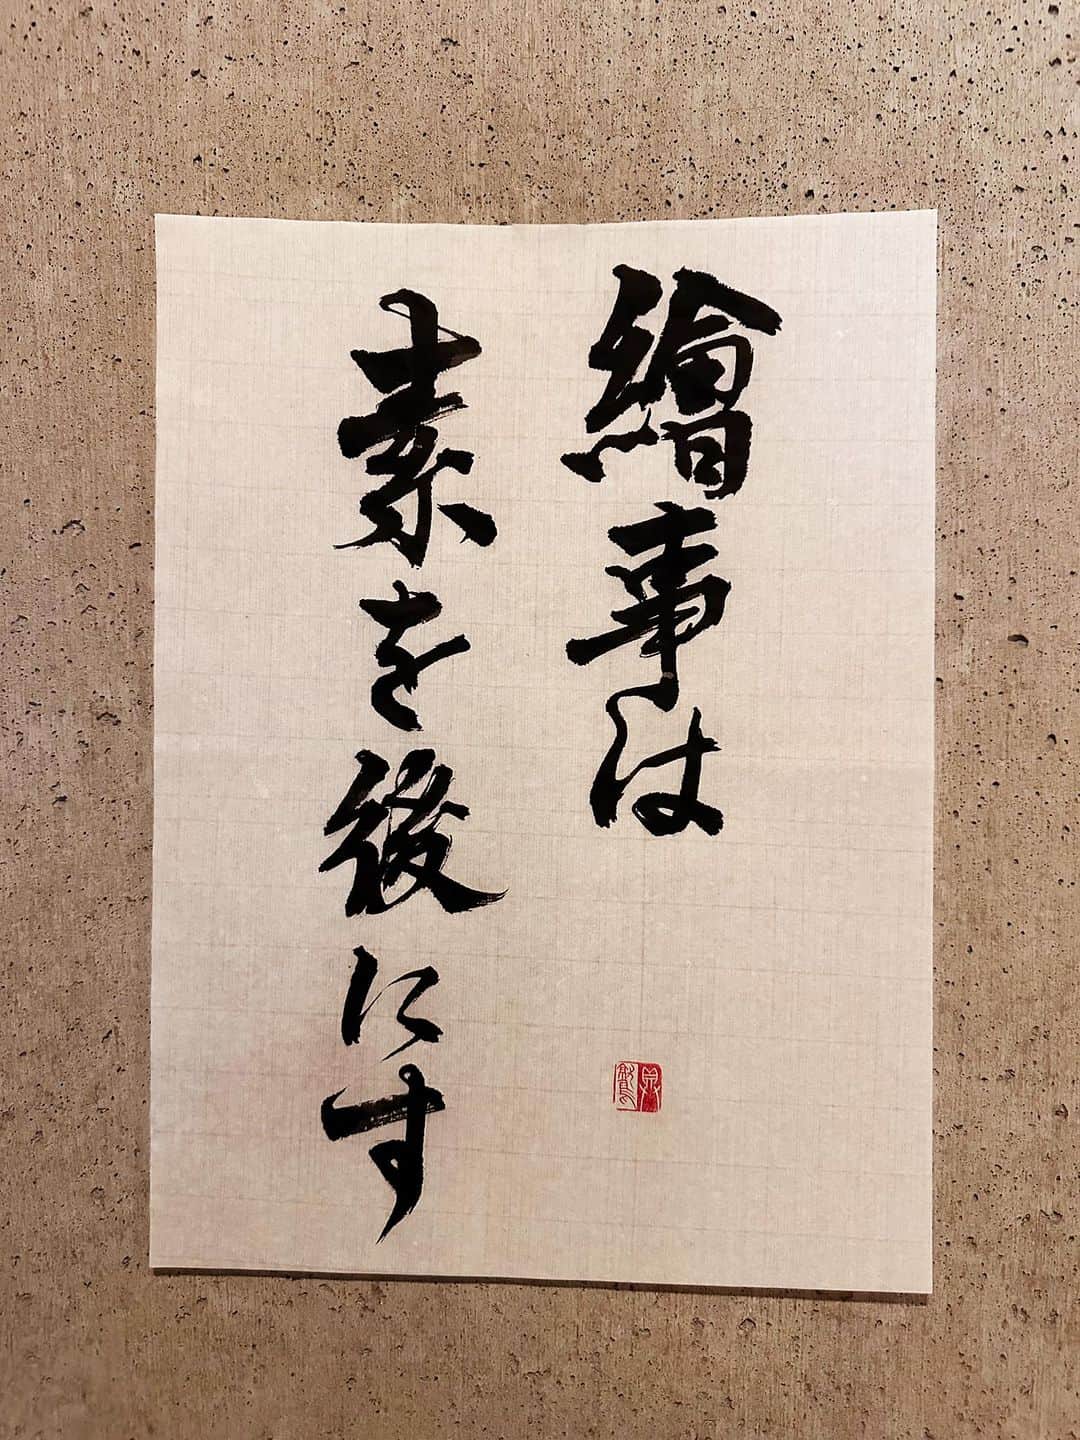 繪事は
素を後にす